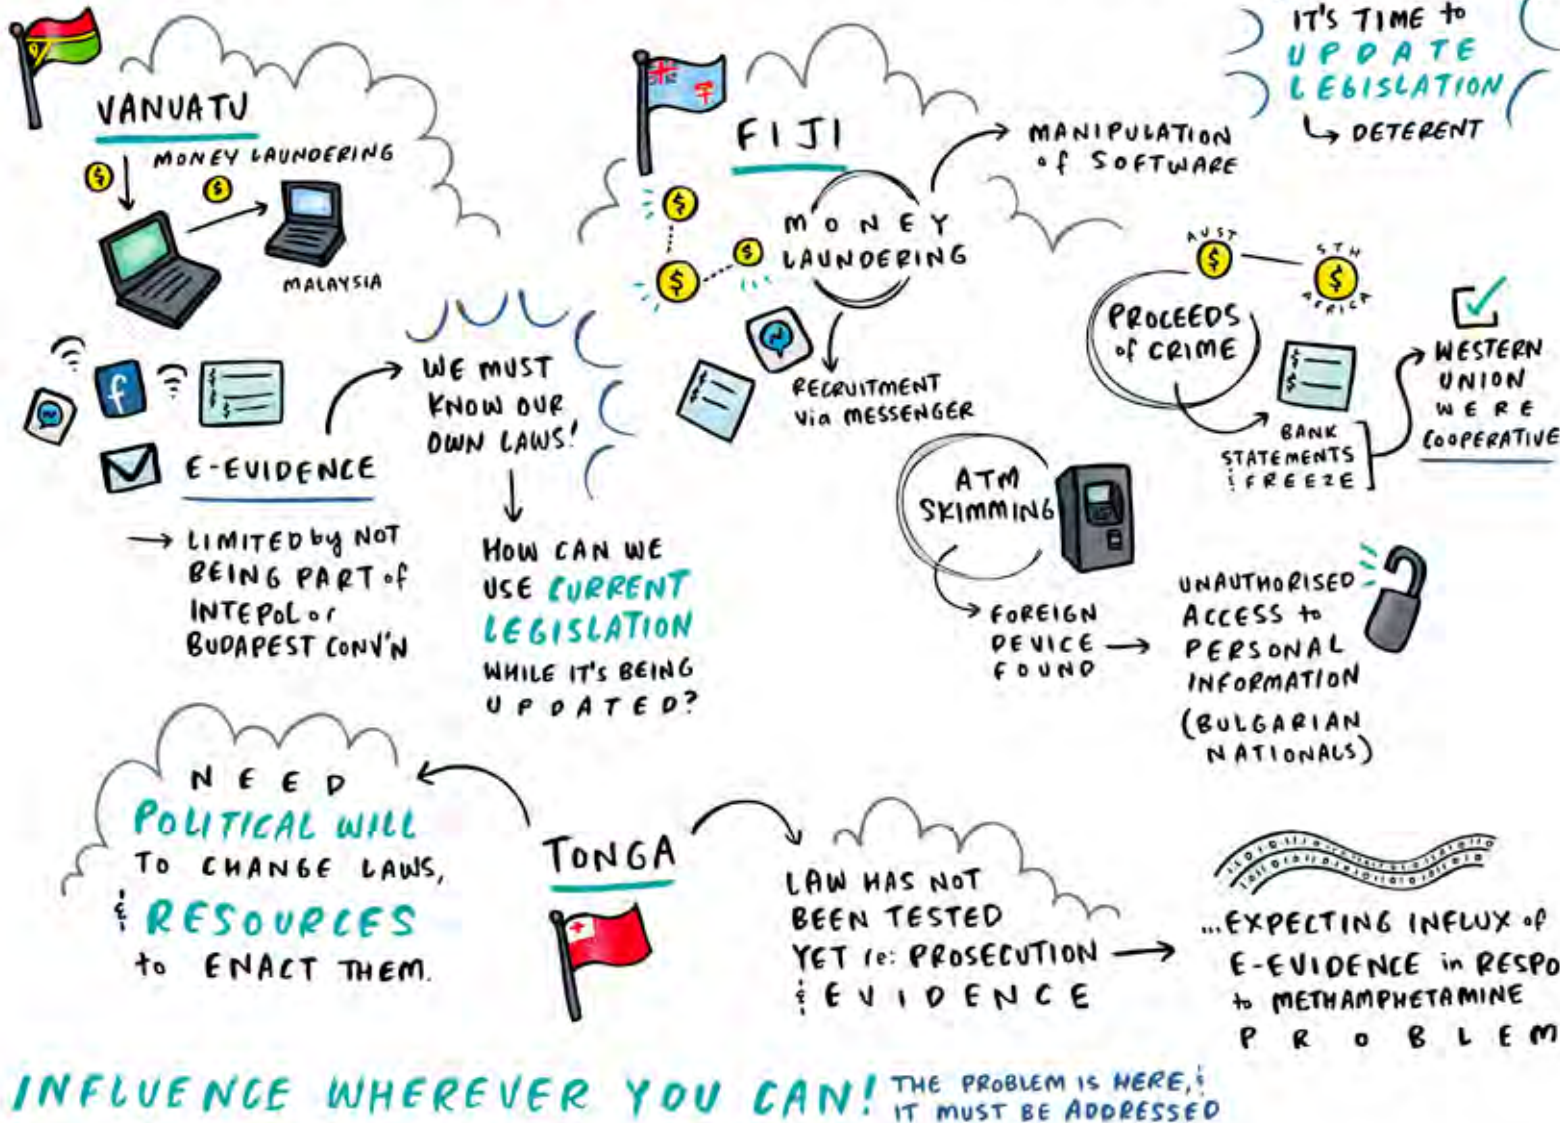 VANUATU
MONEY LAUNDERING
$
$
MALAYSIA
f
$
$
$
E-EVIDENCE
→ LIMITED by NOT
BEING PART of
INTEPOL or
BUDAPEST CONV'N
WE MUST
KNOW OUR
OWN LAWS!
HOW CAN WE
USE CURRENT
LEGISLATION
WHILE IT'S BEING
UPDATED?
FIJI
$
$
$
MONEY
LAUNDERING
MANIPULATION
of SOFTWARE
$
$
RECRUITMENT
via MESSENGER
IT'S TIME to
UPDATE
LEGISLATION
↳ DETERENT
AUST
$
STH
$
AFRICA
PROCEEDS
of CRIME
$
$
BANK
STATEMENTS
& FREEZE
WESTERN
UNION
WERE
COOPERATIVE
ATM
SKIMMING
FOREIGN
DEVICE →
FOUND
UNAUTHORISED
ACCESS to
PERSONAL
INFORMATION
(BULGARIAN
NATIONALS)
TONGA
NEED
POLITICAL WILL
TO CHANGE LAWS,
& RESOURCES
to ENACT THEM.
LAW HAS NOT
BEEN TESTED
YET re: PROSECUTION →
& EVIDENCE
...EXPECTING INFLUX of
E-EVIDENCE in RESPO
to METHAMPHETAMINE
PROBLEM
INFLUENCE WHEREVER YOU CAN!
THE PROBLEM IS HERE, &
IT MUST BE ADDRESSED